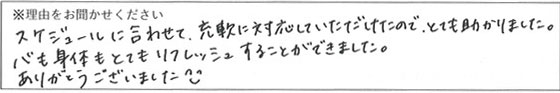 ※理由をお聞かせください
スケジュールに合わせて、柔軟に対応していただけたので、とても助かりました。
心も身体もとてもリフレッシュすることができました。
ありがとうございました